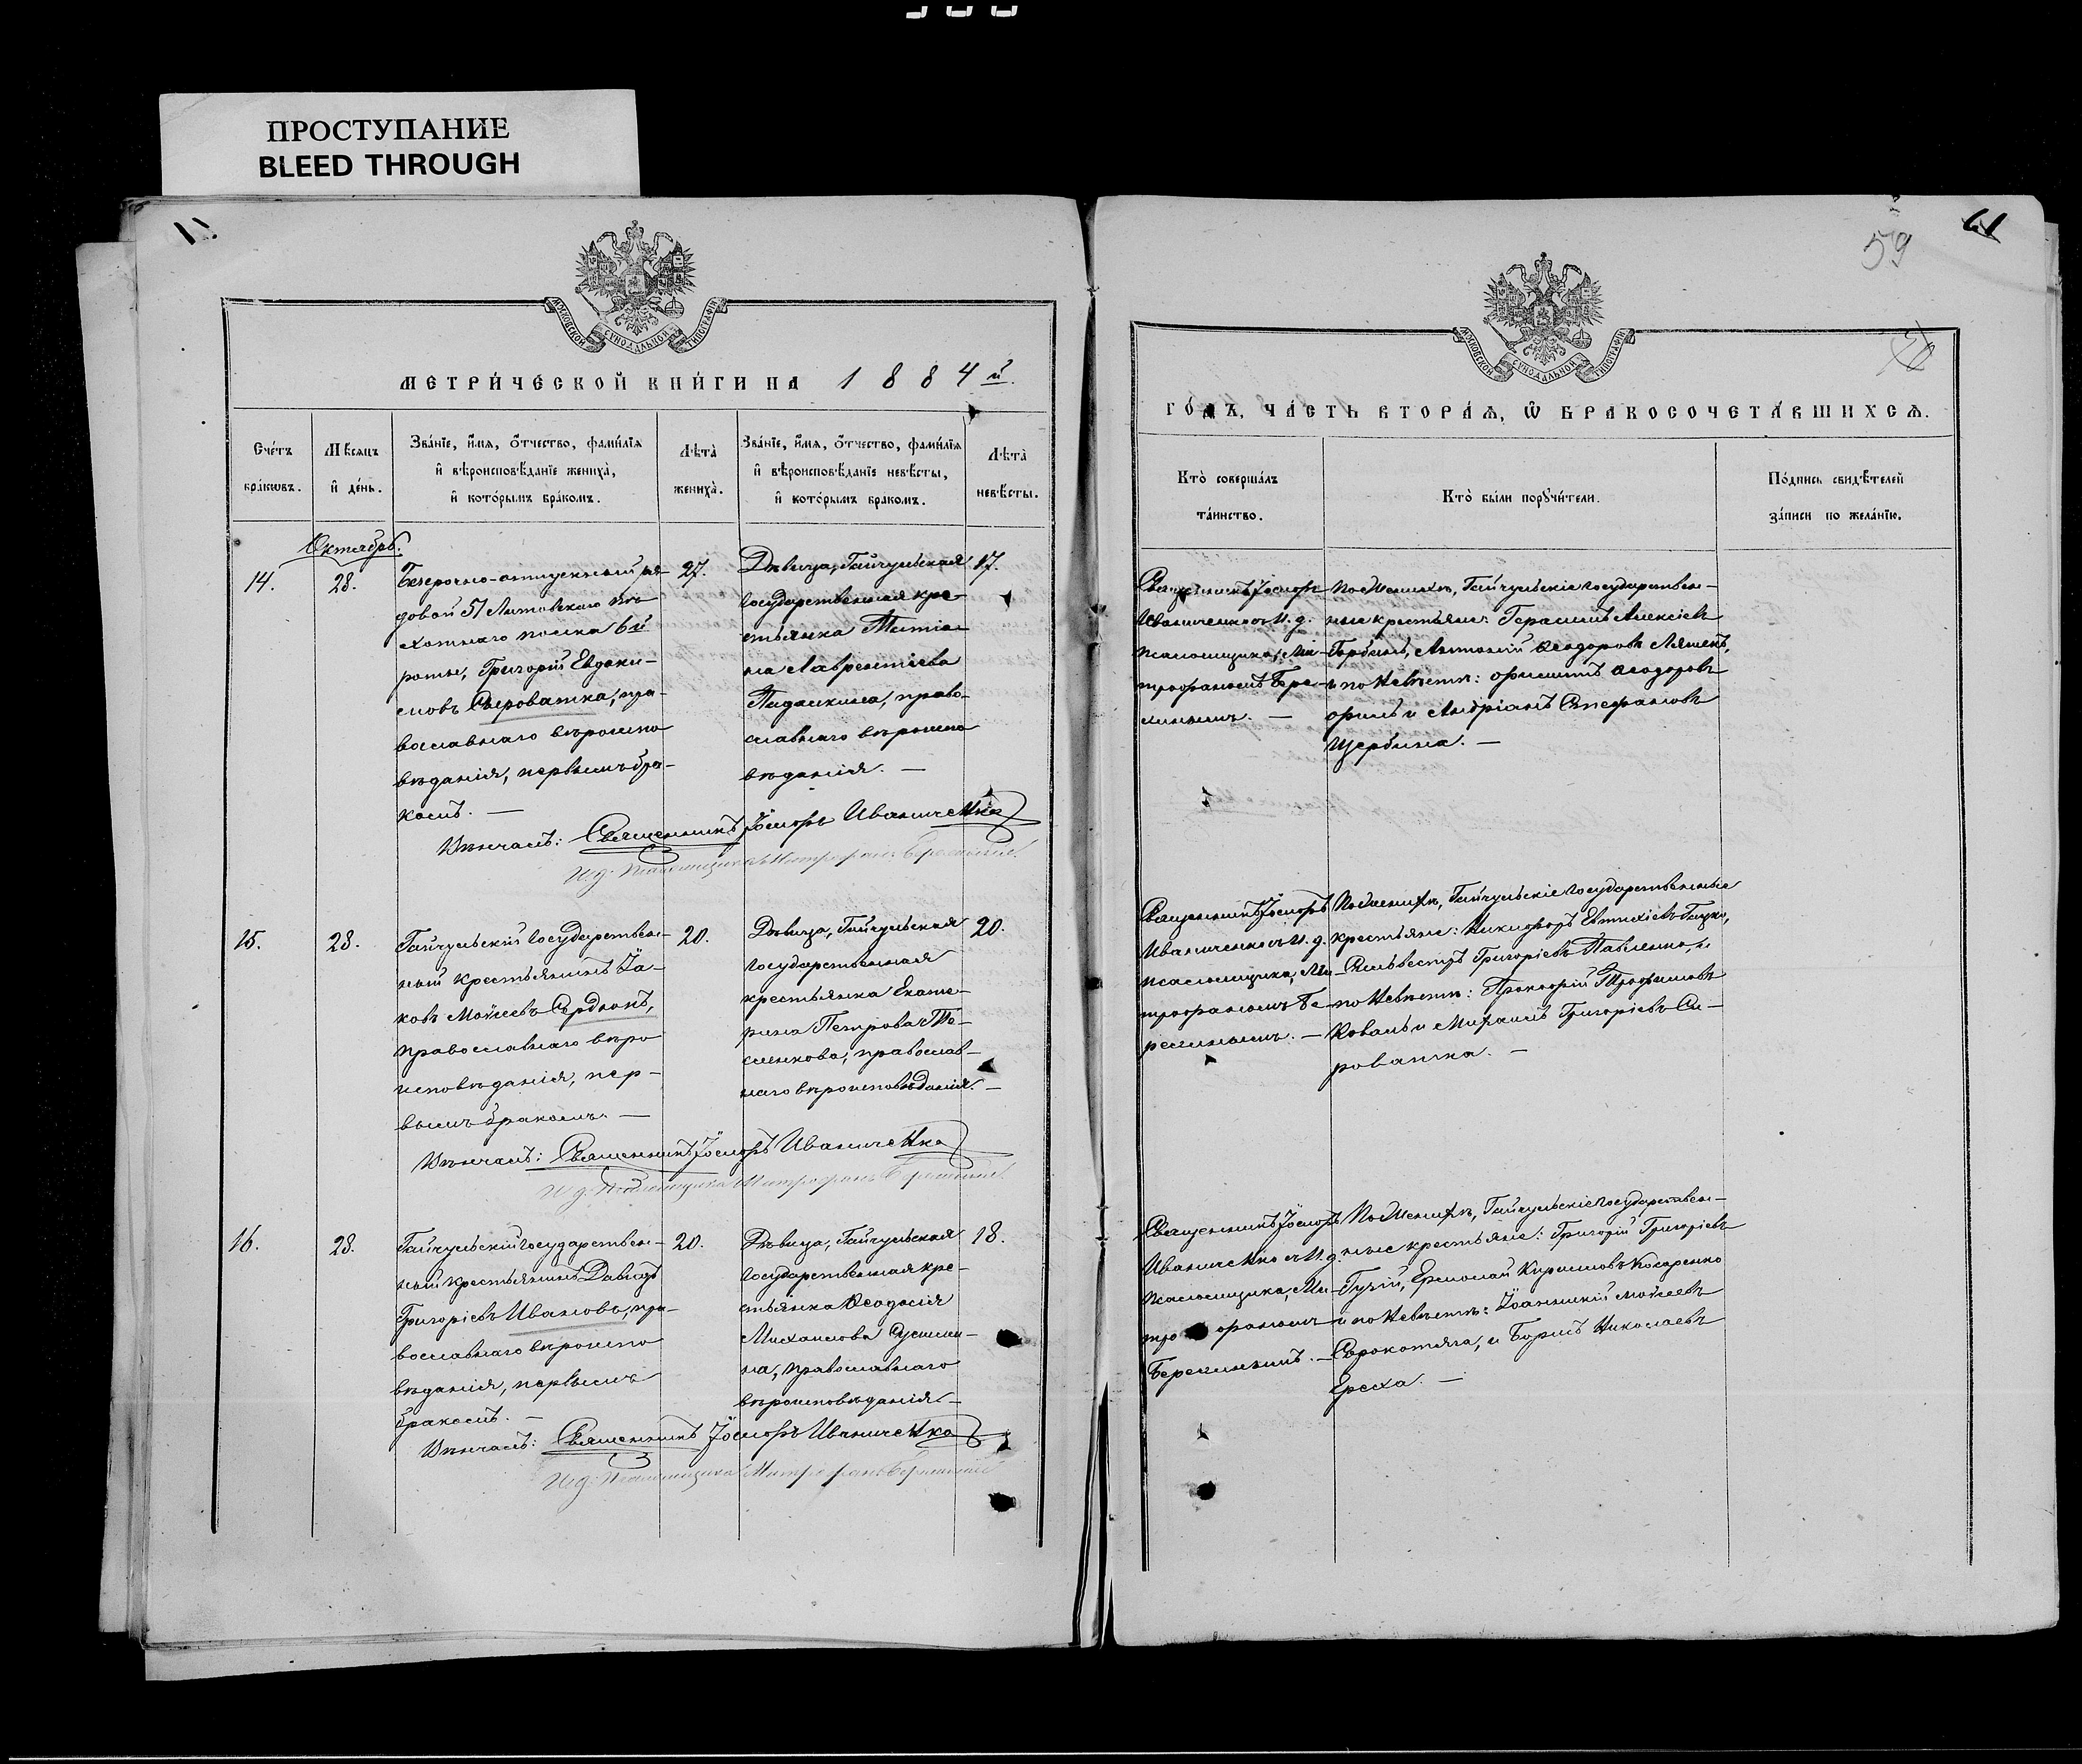 ПРОСТУПАНИЕ
BLEED THROUGH
МОСКОВСКОЙ СѴНОДАЛЬНОЙ ТИПОГРАФІИ
МЕТРИ́ЧЕСКОЙ КНИ́ГИ НА 1884й.
Сче́тъ бра́кѡвъ.
Мѣ́сяцъ и҆ де́нь.
Зва́нїе, и҆́мѧ, ѻ҆́тчество, фами́лїѧ и҆ вѣроисповѣ́данїе жениха̀, и҆ кото́рымъ бра́комъ.
Лѣ́та жениха̀.
Зва́нїе, и҆́мѧ, ѻ҆́тчество, фами́лїѧ и҆ вѣроисповѣ́данїе невѣ́сты, и҆ кото́рымъ бра́комъ.
Лѣ́та невѣ́сты.
Октябрь.
14.
28.
Безсрочно-отпускный ря-
довой 51 Литовскаго пѣ-
хотнаго полка 6й
роты, Григорій Евдоки-
мовъ Сыроватка, пра-
вославнаго вѣроиспо
вѣданія, первымъ бра-
комъ. —
27.
Дѣвица, Гайчульская
государственная кре-
стьянка Татіа-
на Лаврентіева
право-
славнаго вѣроиспо
вѣданія. —
17.
Вѣнчалъ: Священникъ Іосифъ Иваниченко
И. д. Псаломщика Митрофанъ
15.
28.
Гайчульскій государствен-
ный крестьянинъ Іа-
ковъ Моѵсеевъ Сердюкъ,
православнаго вѣро
исповѣданія, пер-
вымъ бракомъ. —
20.
Дѣвица, Гайчульская
государственная
крестьянка Екате-
рина Петрова Те-
сленкова, православ-
наго вѣроисповѣданія. —
20.
Вѣнчалъ: Священникъ Іосифъ Иваниченко
И. д. Псаломщика Митрофанъ
16.
28.
Гайчульскій государствен-
ный крестьянинъ Давидъ
Григорієвъ Ивановъ, пра-
вославнаго вѣроиспо
вѣданія, первымъ
бракомъ. —
20.
Дѣвица, Гайчульская
государственная кре-
стьянка Ѳеодосія
Михаилова
на, православнаго
вѣроисповѣданія —
18.
Вѣнчалъ: Священникъ Іосифъ Иваниченко
И. д. Псаломщика Митрофанъ
59
61
МОСКОВСКОЙ СѴНОДАЛЬНОЙ ТИПОГРАФІИ
ГО́ДЪ, ЧА́СТЬ ВТОРА́Ѧ, Ѽ БРАКОСОЧЕТА́ВШИХСѦ.
Кто̀ соверша́лъ та́инство.
Кто̀ бы́ли порꙋчи́тели.
По́дпись свидѣ́телей за́писи по жела́нїю.
Священникъ Іосифъ
Иваниченко съ И. д.
псаломщика, Ми-
трофаномъ
По женихѣ, Гайчульскіе государствен-
ные крестьяне: Герасимъ Алексіевъ
Горбань, Антоній Ѳеодоровъ
и по невѣстѣ: Ѳеодоровъ
и Андріанъ Стефановъ
Щербина. —
Священникъ Іосифъ
Иваниченко съ И. д.
псаломщика, Ми-
трофаномъ Бе-
По женихѣ, Гайчульскіе государственные
крестьяне: Никифоръ Евтихіевъ
Сильвестръ Григоріевъ Павленко, и
по невѣстѣ: Прокофій Трофимовъ
Коваль и Михаилъ Григоріевъ Си-
роватка. —
Священникъ Іосифъ
Иваниченко съ И. д.
псаломщика, Ми-
трофаномъ
По женихѣ, Гайчульскіе государствен-
ные крестьяне: Григорій Григоріевъ
Гугій, Ермолай Кириловъ Косаренко
и по невѣстѣ: Іоанникій Моѵсеевъ
Сорокотяга, и Борисъ Николаевъ